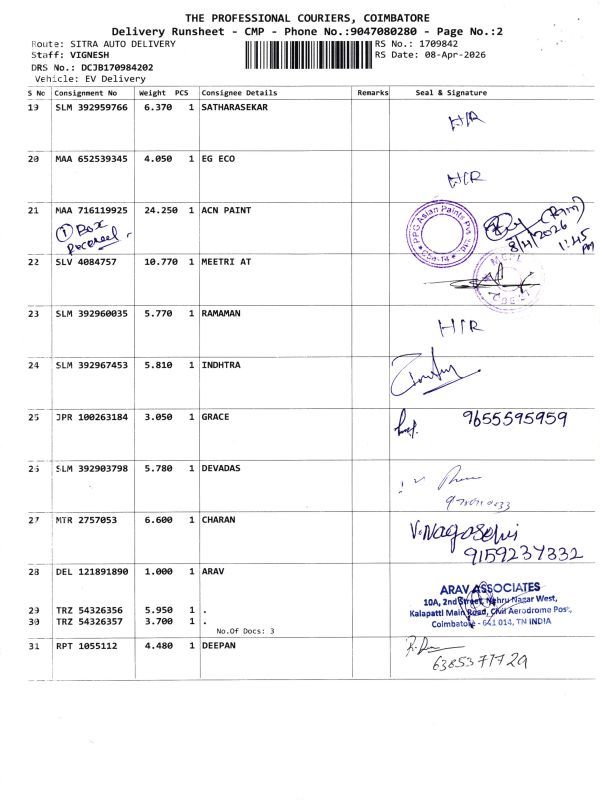 THE PROFESSIONAL COURIERS, COIMBATORE
Delivery Runsheet - CMP - Phone No.:9047080280 - Page No.:2
Route: SITRA AUTO DELIVERY RS No.: 1709842
Staff: VIGNESH RS Date: 08-Apr-2026
DRS No.: DCJB170984202
Vehicle: EV Delivery
S No Consignment No Weight PCS Consignee Details Remarks Seal & Signature
19 SLM 392959766 6.370 1 SATHARASEKAR
H/R
20 MAA 652539345 4.050 1 EG ECO
H/R
21 MAA 716119925 24.250 1 ACN PAINT
① Box
Received
PPG Asian Paints Pvt. Ltd.
(Ram)
8/4/2026
1:45 PM
22 SLV 4084757 10.770 1 MEETRI AT
23 SLM 392960035 5.770 1 RAMAMAN
H/R
24 SLM 392967453 5.810 1 INDHTRA
25 JPR 100263184 3.050 1 GRACE
9655595959
26 SLM 392903798 5.780 1 DEVADAS
27 MTR 2757053 6.600 1 CHARAN
9159237332
28 DEL 121891890 1.000 1 ARAV
ARAV ASSOCIATES
10A, 2nd Street, Nehru Nagar West,
Kalapatti Main Road, Civil Aerodrome Post,
Coimbatore - 641 014, TN INDIA
29 TRZ 54326356 5.950 1 .
30 TRZ 54326357 3.700 1 .
No.Of Docs: 3
31 RPT 1055112 4.480 1 DEEPAN
6385377729